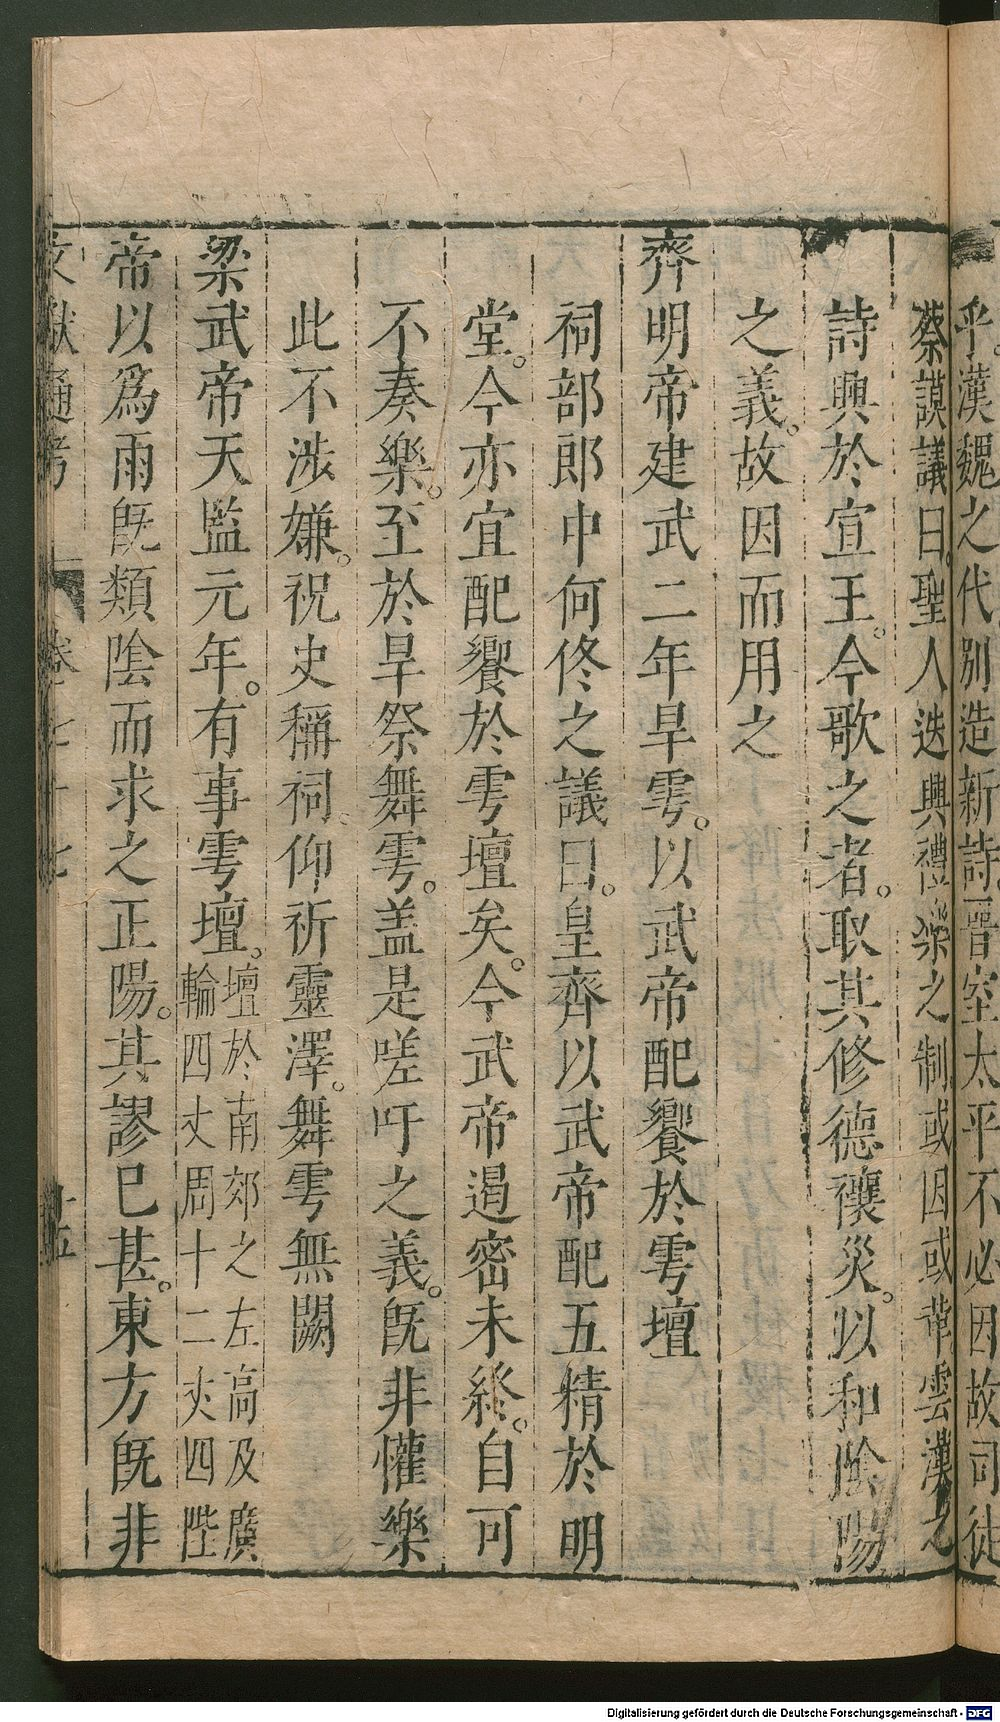 乎。漢魏之代別造新詩。晉室太平不必因故司徒
蔡謨議曰。聖人迭興禮樂之制或因或革雲漢之
詩興於宣王。今歌之者。取其修德禳災。以和陰陽
之義。故因而用之
齊明帝建武二年旱雩。以武帝配饗於雩壇
祠部郎中何佟之議曰。皇齊以武帝配五精於明
堂。今亦宜配饗於雩壇矣。今武帝遏密未終。自可
不奏樂。至於旱祭舞雩。盖是嗟吁之義。旣非懽樂
此不涉嫌。祝史稱祠。仰祈靈澤。舞雩無闕
梁武帝天監元年。有事雩壇。壇於南郊之左高及廣
輪四丈周十二丈四陛
帝以爲雨旣類陰而求之正陽。其謬已甚。東方旣非
文獻通考 卷七十七 十五
Digitalisierung gefördert durch die Deutsche Forschungsgemeinschaft - DFG